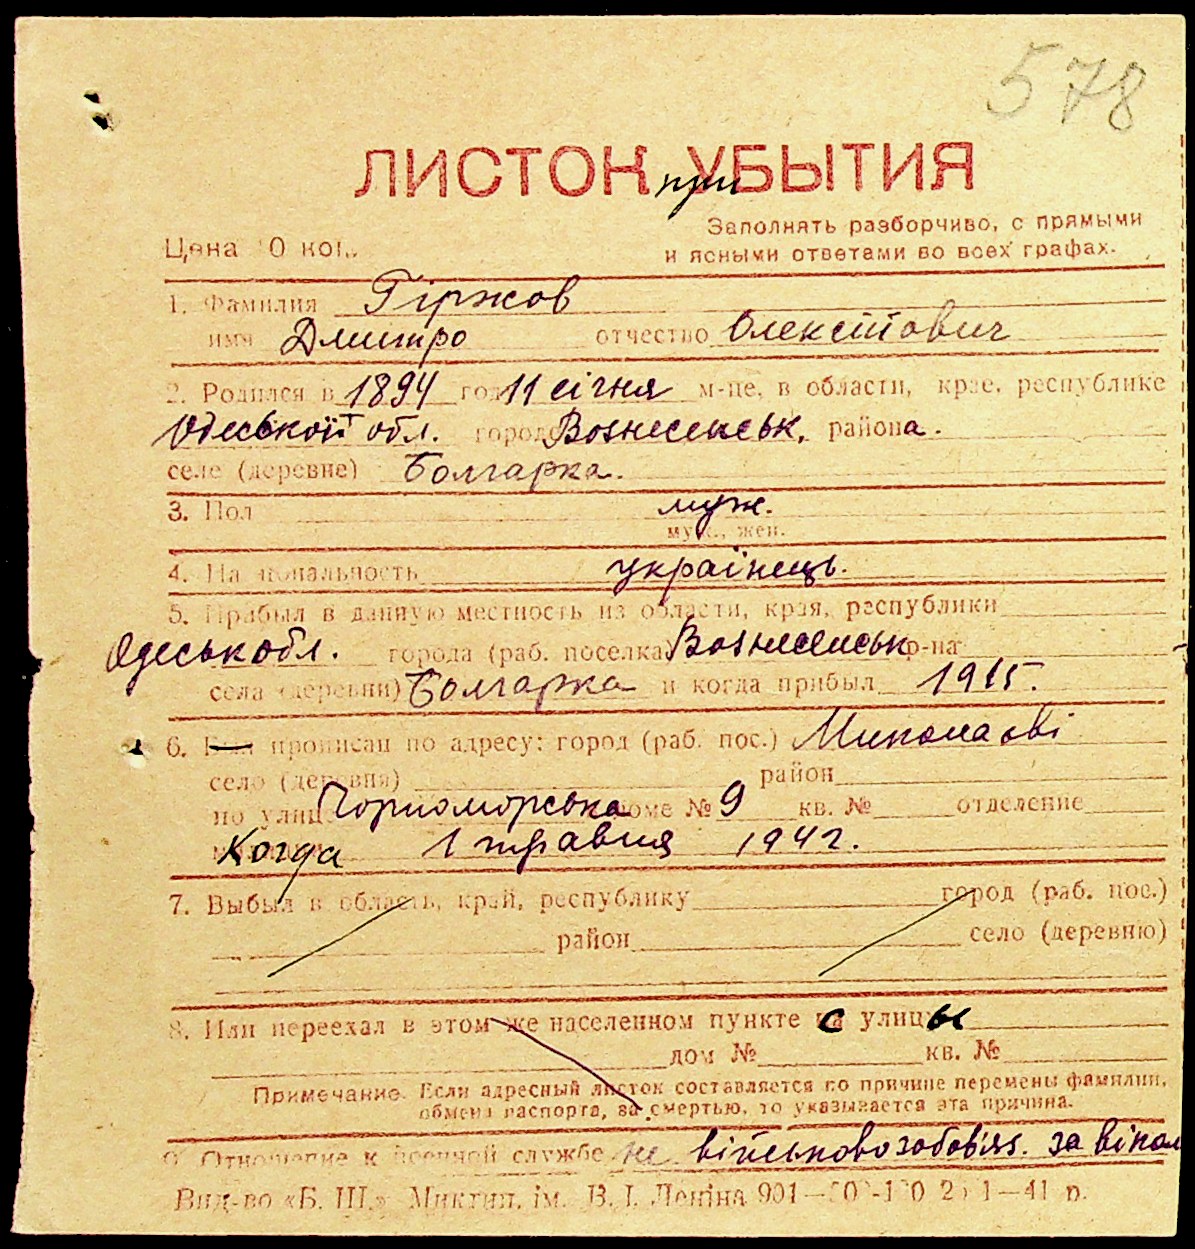 578
ЛИСТОК при УБЫТИЯ
Заполнять разборчиво, с прямыми
и ясными ответами во всех графах.
Цена 0 коп.
1. Фамилия Гіржов
имя Дмитро отчество Олексійович
2. Родился в 1894 год 11 січня м-це, в области, крае, республике
Одеській обл. город Вознесенськ, района.
селе (деревне) Болгарка.
3. Пол муж.
муж., жен.
4. Национальность українець.
5. Прибыл в данную местность из области, края, республики
Одеськ обл. города (раб. поселка) Вознесенськ р-на
села (деревни) Болгарка и когда прибыл 1915.
6. прописан по адресу: город (раб. пос.) Миколаєві
село (деревня) район
по улице Чорноморська доме № 9 кв. № отделение
Когда 1 травня 1942.
7. Выбыл в область, край, республику город (раб. пос.)
район село (деревню)
8. Или переехал в этом же населенном пункте с улицы
дом № кв. №
Примечание. Если адресный листок составляется по причине перемены фамилии,
обмена паспорта, за смертью, то указывается эта причина.
9. Отношение к военной службе не військовозобов'яз. за віком
Вид-во «Б. Ш.» Миктип. ім. В. І. Леніна 901— 1—41 р.